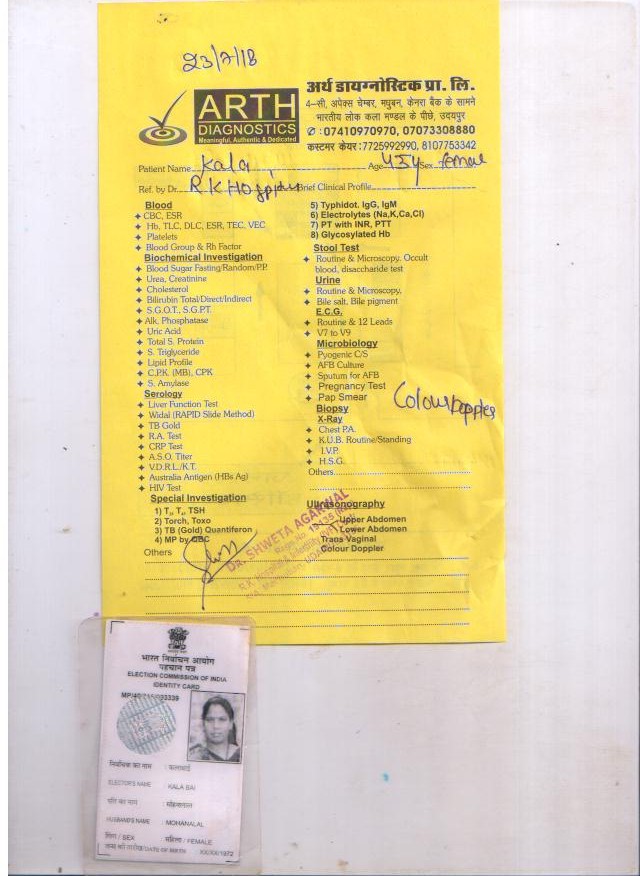 23/7/18
अर्थ डायग्नोस्टिक प्रा. लि.
4-सी, अपेक्स चेम्बर, मधुबन, केनरा बैंक के सामने
भारतीय लोक कला मण्डल के पीछे, उदयपुर
ARTH
DIAGNOSTICS
Meaningful, Authentic & Dedicated
07410970970, 07073308880
कस्टमर केयर:7725992990, 8107753342
Patient Name Kala Age 45y Sex female
Ref. by Dr. RK Hospital Brief Clinical Profile
Blood
CBC, ESR
Hb, TLC, DLC, ESR, TEC, VEC
Platelets
Blood Group & Rh Factor
Biochemical Investigation
Blood Sugar Fasting/Random/P.P.
Urea, Creatinine
Cholesterol
Bilirubin Total/Direct/Indirect
S.G.O.T., S.G.P.T.
Alk. Phosphatase
Uric Acid
Total S. Protein
S. Triglyceride
Lipid Profile
C.P.K. (MB), CPK
S. Amylase
Serology
Liver Function Test
Widal (RAPID Slide Method)
TB Gold
R.A. Test
CRP Test
A.S.O. Titer
V.D.R.L./K.T.
Australia Antigen (HBs Ag)
HIV Test
Special Investigation
1) T₃, T₄, TSH
2) Torch, Toxo
3) TB (Gold) Quantiferon
4) MP by QBC
Others
5) Typhidot. IgG, IgM
6) Electrolytes (Na,K,Ca,Cl)
7) PT with INR, PTT
8) Glycosylated Hb
Stool Test
Routine & Microscopy, Occult
blood, disaccharide test
Urine
Routine & Microscopy,
Bile salt, Bile pigment
E.C.G.
Routine & 12 Leads
V7 to V9
Microbiology
Pyogenic C/S
AFB Culture
Sputum for AFB
Pregnancy Test
Pap Smear
Colour Doppler
Biopsy
X-Ray
Chest P.A.
K.U.B. Routine/Standing
I.V.P.
H.S.G.
Others
Ultrasonography
Upper Abdomen
Lower Abdomen
Trans Vaginal
Colour Doppler
DR. SHWETA AGARWAL
भारत निर्वाचन आयोग
पहचान पत्र
ELECTION COMMISSION OF INDIA
IDENTITY CARD
निर्वाचक का नाम : कलाबाई
ELECTOR'S NAME : KALA BAI
पति का नाम : मोहनलाल
HUSBAND'S NAME : MOHANALAL
लिंग / SEX : महिला / FEMALE
जन्म की तारीख/DATE OF BIRTH XX/XX/1972